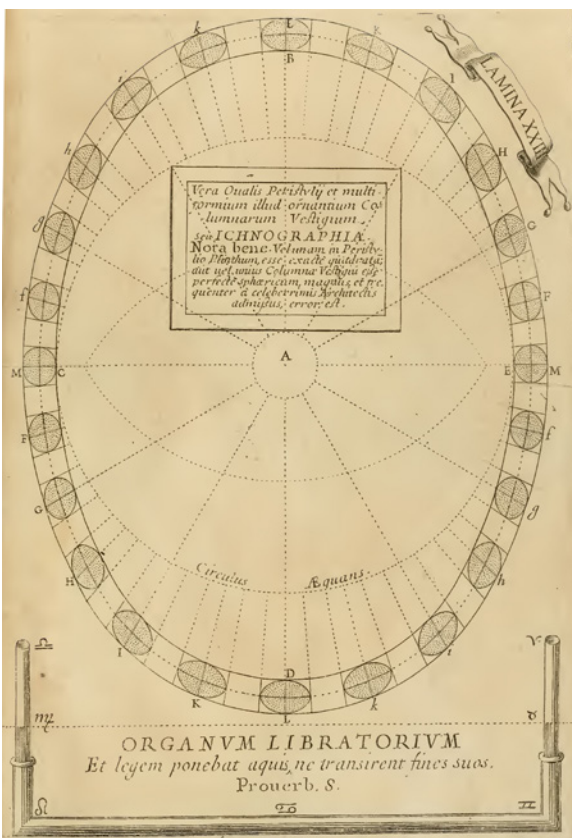 LAMINA XXIII
Vera Oualis Peristylij et multi-
formium illud ornantium Co-
lumnarum Vestigium
seu ICHNOGRAPHIÆ
Nota bene. Velunam in Peristy-
lio Plinthum, esse exacte quadratū;
aut uel unius Columnæ Vestigiū esse
perfectè sphæricum, magnus, et fre-
quenter à celeberrimis Architectis
admissus, error est.
L
k
k
B
i
I
h
H
g
G
f
F
A
M
C
E
M
F
f
G
g
H
h
Circulus Æquans.
I
i
K
D
k
L
♎
♈
♏
♉
ORGANVM LIBRATORIVM
Et legem ponebat aquis, ne transirent fines suos.
Prouerb. 8.
♌
♋
♊